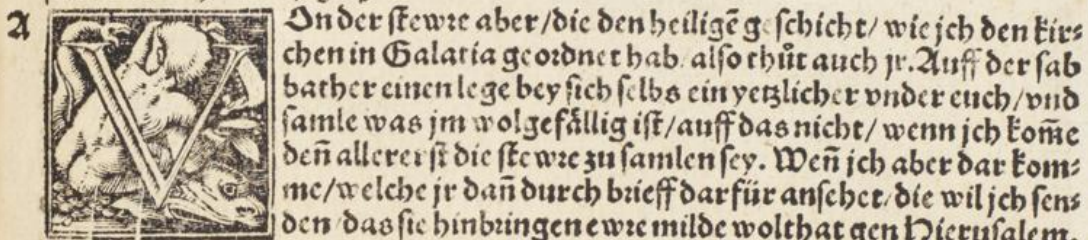 A
VOn der stewre aber/die den heiligē geschicht/ wie jch den kir⸗
chen in Galatia geordnet hab. also thuͦt auch jr. Auff der sab
bather einen lege bey sich selbs ein yetzlicher vnder euch/vnd
samle was jm wolgefaͤllig ist/auff das nicht/ wenn jch kom̄e
deñ allererst die stewre zu samlen sey. Weñ jch aber dar kom⸗
me/welche jr dañ durch brieff darfür ansehet/die wil jch sen⸗
den/das sie hinbringen ewre milde wolthat gen Hierusalem.